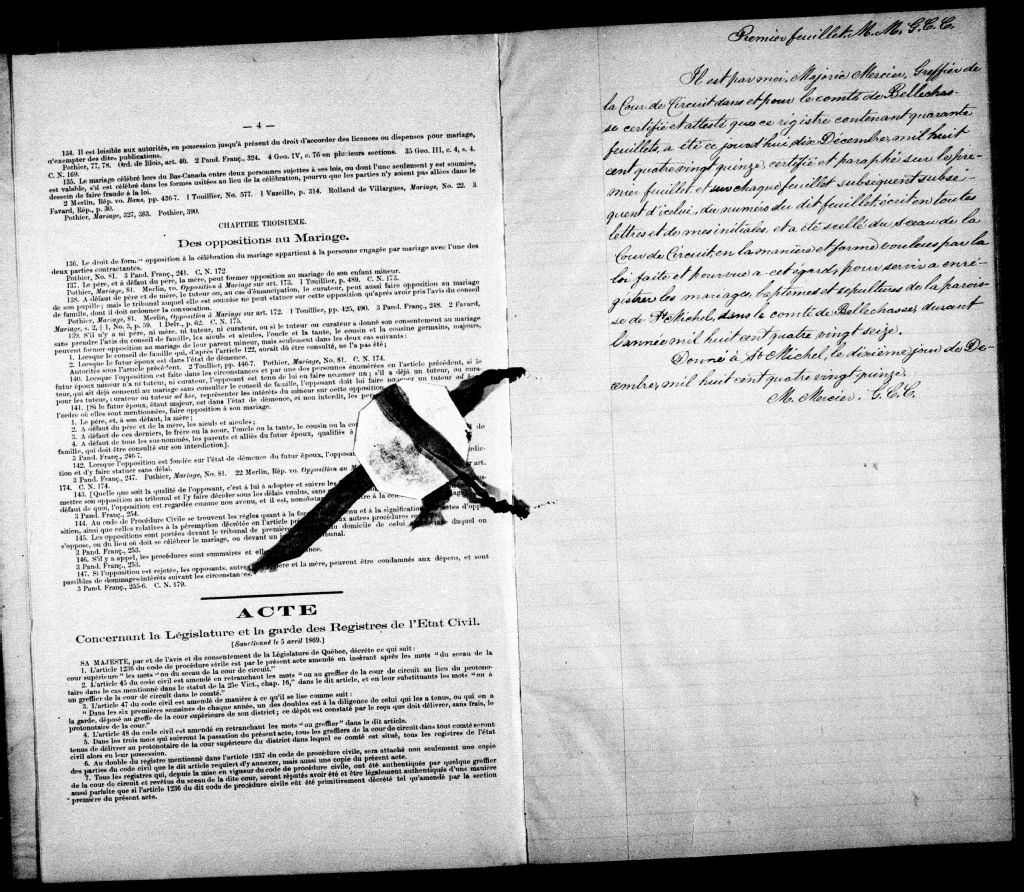 — 4 —
134. Il est loisible aux autorités, en possession jusqu'à présent du droit d'accorder des licences ou dispenses pour mariage,
d'exempter des dites publications.
Pothier, 77, 78. Ord. de Blois, art. 40. 2 Pand. Franç., 324. 4 Geo. IV, c. 76 en plusieurs sections. 35 Geo. III, c. 4, s. 4.
C. N. 169.
135. Le mariage célébré hors du Bas-Canada entre deux personnes sujettes à ses lois, ou dont l'une seulement y est soumise,
est valable, s'il est célébré dans les formes usitées au lieu de la célébration, pourvu que les parties n'y soient pas allées dans le
dessein de faire fraude à la loi.
2 Merlin, Rép. vo. Bans, pp. 436-7. 1 Touillier, No. 577. 1 Vazeille, p. 314. Rolland de Villargues, Mariage, No. 22. 3
Favard, Rép., p. 30.
Pothier, Mariage, 327, 363. Pothier, 390.
CHAPITRE TROISIEME.
Des oppositions au Mariage.
136. Le droit de former opposition à la célébration du mariage appartient à la personne engagée par mariage avec l'une des
deux parties contractantes.
Pothier, No. 81. 3 Pand. Franç., 241. C. N. 172.
137. Le père, et à défaut du père, la mère, peut former opposition au mariage de son enfant mineur.
Pothier, Mariage, 81. Merlin, vo. Opposition à Mariage sur art. 173. 1 Touillier, p. 489. C. N. 173.
138. A défaut de père et de mère, le tuteur, ou, au cas d'émancipation, le curateur, peut aussi faire opposition au mariage
de son pupille; mais le tribunal auquel elle est soumise ne peut statuer sur cette opposition qu'après avoir pris l'avis du conseil
de famille, dont il doit ordonner la convocation.
Pothier, Mariage, 81. Merlin, Opposition à Mariage sur art. 172. 1 Touillier, pp. 425, 490. 3 Pand. Franç., 248. 2 Favard,
Mariage, s. 2, § 1, No. 3, p. 59. 1 Delv., p. 62. C. N. 175.
139. S'il n'y a ni père, ni mère, ni tuteur, ni curateur, ou si le tuteur ou curateur a donné son consentement au mariage
sans prendre l'avis du conseil de famille, les aïeuls et aïeules, l'oncle et la tante, le cousin et la cousine germains, majeurs,
peuvent former opposition au mariage de leur parent mineur, mais seulement dans les deux cas suivants:
1. Lorsque le conseil de famille qui, d'après l'article 122, aurait dû être consulté, ne l'a pas été;
2. Lorsque le futur époux est dans l'état de démence.
Autorités sous l'article précédent. 2 Touillier, pp. 446-7. Pothier, Mariage, No. 81. C. N. 174.
140. Lorsque l'opposition est faite dans les circonstances et par une des personnes énumérées en l'article précédent, si le
futur époux mineur n'a ni tuteur, ni curateur, l'opposant est tenu de lui en faire nommer un; s'il a déjà un tuteur, ou cura-
teur, qui ait déjà consenti au mariage sans consulter le conseil de famille, l'opposant doit lui faire nommer un tuteur ad hoc
pour les tuteur, curateur ou tuteur ad hoc, représenter les intérêts du mineur sur cette opposition.
141. [Si le futur époux, étant majeur, est dans l'état de démence, et non interdit, les
l'ordre où elles sont mentionnées, faire opposition à son mariage.
1. Le père, et, à son défaut, la mère;
2. A défaut du père et de la mère, les aïeuls et aïeules;
3. A défaut de ces derniers, le frère ou la sœur, l'oncle ou la tante, le cousin ou la
4. A défaut de tous les sus-nommés, les parents et alliés du futur époux, qualifiés à de
famille, qui doit être consulté sur son interdiction].
3 Pand. Franç., 246-7.
142. Lorsque l'opposition est fondée sur l'état de démence du futur époux, l'opposant
tion et d'y faire statuer sans délai.
3 Pand. Franç., 247. Pothier, Mariage, No. 81. 22 Merlin, Rép. vo. Opposition au art.
174. C. N. 174.
143. [Quelle que soit la qualité de l'opposant, c'est à lui à adopter et suivre les
mettre son opposition au tribunal et l'y faire décider sous les délais voulus, sans
défaut de quoi, l'opposition est regardée comme non avenu, et il est, nonobstant
3 Pand. Franç., 254.
144. Au code de Procédure Civile se trouvent les règles quant à la et à la signification d'oppo-
sition, ainsi que celles relatives à la péremption décrétée en l'article autres procédures
145. Les oppositions sont portées devant le tribunal de première domicile de celui duquel on
s'oppose, ou du lieu où doit se célébrer le mariage, ou devant un
3 Pand. Franç., 253.
146. S'il y a appel, les procédures sont sommaires et
3 Pand. Franç., 253.
147. Si l'opposition est rejetée, les opposants, autres et la mère, peuvent être condamnés aux dépens, et sont
passibles de dommages-intérêts suivant les circonstances.
3 Pand. Franç., 255-6. C. N. 179.
ACTE
Concernant la Législature et la garde des Registres de l'Etat Civil.
[Sanctionné le 5 avril 1869.]
SA MAJESTE, par et de l'avis et du consentement de la Législature de Québec, décrète ce qui suit:
1. L'article 1236 du code de procédure civile est par le présent acte amendé en insérant après les mots "du sceau de la
cour supérieure" les mots "ou du sceau de la cour de circuit."
2. L'article 45 du code civil est amendé en retranchant les mots "ou au greffier de la cour de circuit au lieu du protono-
taire dans le cas mentionné dans le statut de la 25e Vict., chap. 16," dans le dit article, et en leur substituant les mots "ou à
un greffier de la cour de circuit dans le comté."
3. L'article 47 du code civil est amendé de manière à ce qu'il se lise comme suit:
"Dans les six premières semaines de chaque année, un des doubles est à la diligence de celui qui les a tenus, ou qui en a
la garde, déposé au greffe de la cour supérieure de son district; ce dépôt est constaté par le reçu que doit délivrer, sans frais, le
protonotaire de la cour."
4. L'article 48 du code civil est amendé en retranchant les mots "ou greffier" dans le dit article.
5. Dans les trois mois qui suivront la passation du présent acte, tous les greffiers de la cour de circuit dans tout comté seront
tenus de délivrer au protonotaire de la cour supérieure du district dans lequel ce comté est situé, tous les registres de l'état
civil alors en leur possession.
6. Au double du registre mentionné dans l'article 1237 du code de procédure civile, sera attaché non seulement une copie
des parties du code civil que le dit article requiert d'y annexer, mais aussi une copie du présent acte.
7. Tous les registres qui, depuis la mise en vigueur du code de procédure civile, ont été authentiqués par quelque greffier
de la cour de circuit et revêtus du sceau de la dite cour, seront réputés avoir été et être légalement authentiqués d'une manière
aussi parfaite que si l'article 1236 du dit code de procédure civile eût été primitivement décrété tel qu'amendé par la section
première du présent acte.
Premier feuillet. M. M. G. C. C.
Il est par moi, Majoric Mercier, Greffier de
la Cour de Circuit dans et pour le comté de Bellechas-
se certifié et attesté que ce régistre contenant quarante
feuillets, a été ce jourd'hui dix Décembre, mil huit
cent quatre vingt quinze, certifié et paraphé sur le pre-
mier feuillet et sur chaque feuillet subséquent subsé-
quent d'icelui, du numéro du dit feuillet écrit en toutes
lettres et de mes initiales, et a été scellé du sceau de la
Cour de Circuit, en la manière et forme voulues par la
loi faite et pourvue a cet égard, pour servir a enré-
gistrer les mariages, baptêmes et sépultures de la parois-
se de St Michel, dans le comté de Bellechasse, durant
l'année mil huit cent quatre vingt seize.
Donné à St Michel, le dixième jour de Dé-
cembre, mil huit cent quatre vingt quinze.
M. Mercier. G. C. C.